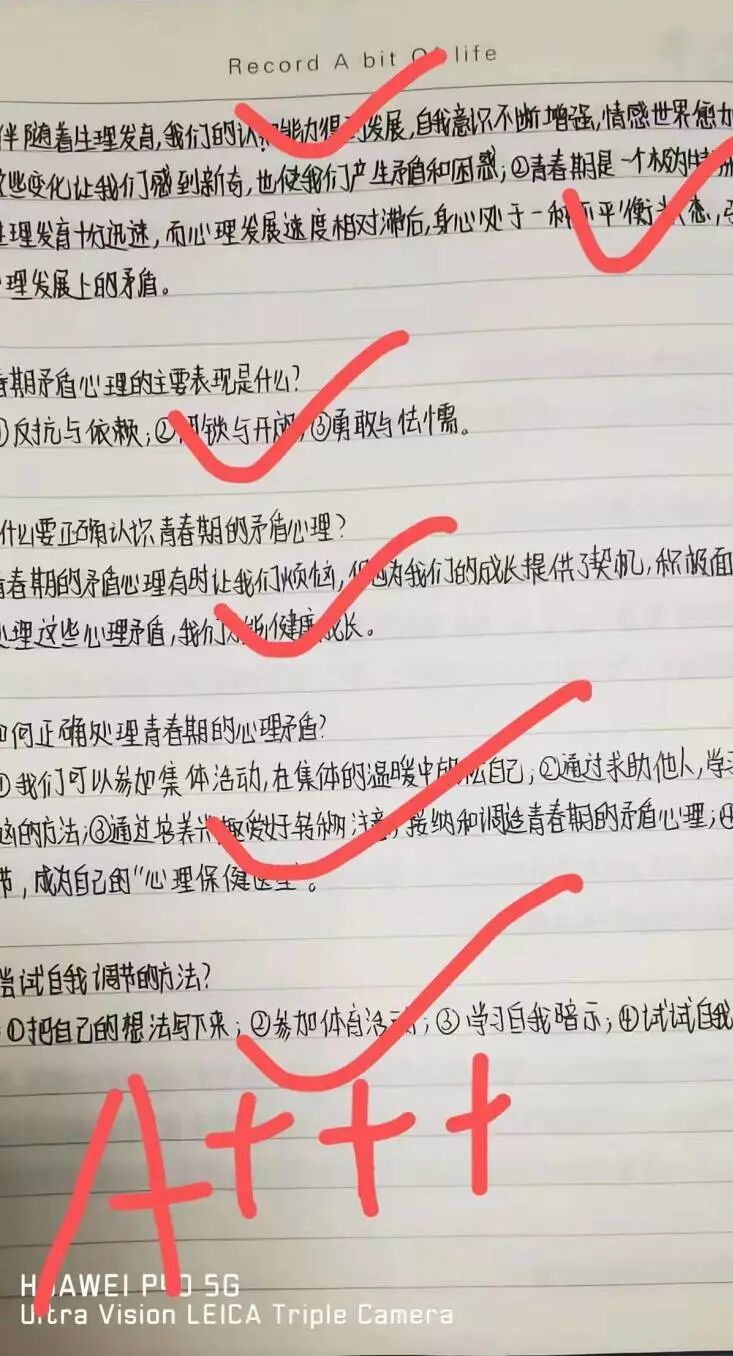 Record A bit Of life
伴随着生理发育,我们的认知能力得到发展,自我意识不断增强,情感世界愈加
这些变化让我们感到新奇,也使我们产生矛盾和困惑;②青春期是一个极为特殊
生理发育十分迅速,而心理发展速度相对滞后,身心处于一种不平衡状态,引
心理发展上的矛盾。
春期矛盾心理的主要表现是什么?
①反抗与依赖;②闭锁与开放;③勇敢与怯懦。
什么要正确认识青春期的矛盾心理?
青春期的矛盾心理有时让我们烦恼,但也为我们的成长提供了契机,积极面
处理这些心理矛盾,我们才能健康成长。
如何正确处理青春期的心理矛盾?
①我们可以参加集体活动,在集体的温暖中放松自己;②通过求助他人,学
恼的方法;③通过培养兴趣爱好转移注意,接纳和调适青春期的矛盾心理;④
节,成为自己的“心理保健医生”。
尝试自我调节的方法?
①把自己的想法写下来;②参加体育活动;③学习自我暗示;④试试自我
A+++
HUAWEI P40 5G
Ultra Vision LEICA Triple Camera